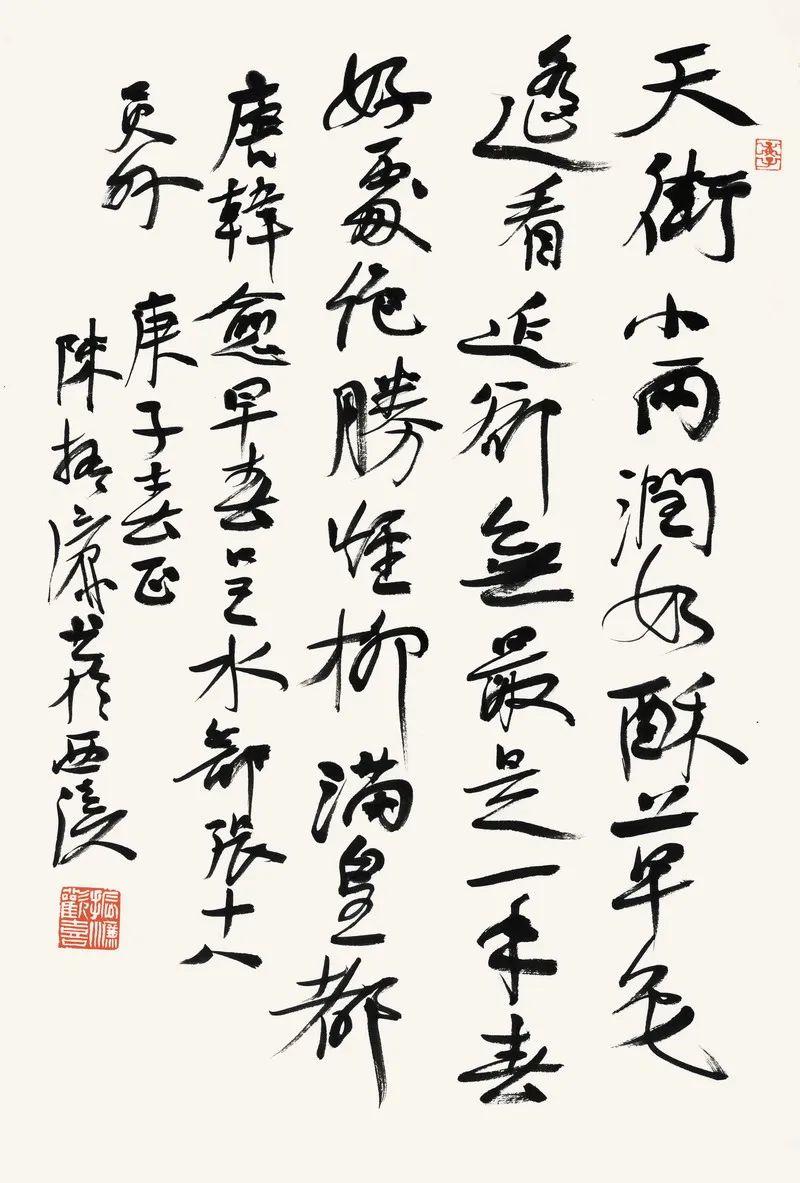 天街小雨潤如酥草色
遙看近卻無最是一年春
好處絕勝煙柳滿皇都
唐韓愈早春呈水部張十八
員外 庚子春正
陳振濂書於西溪